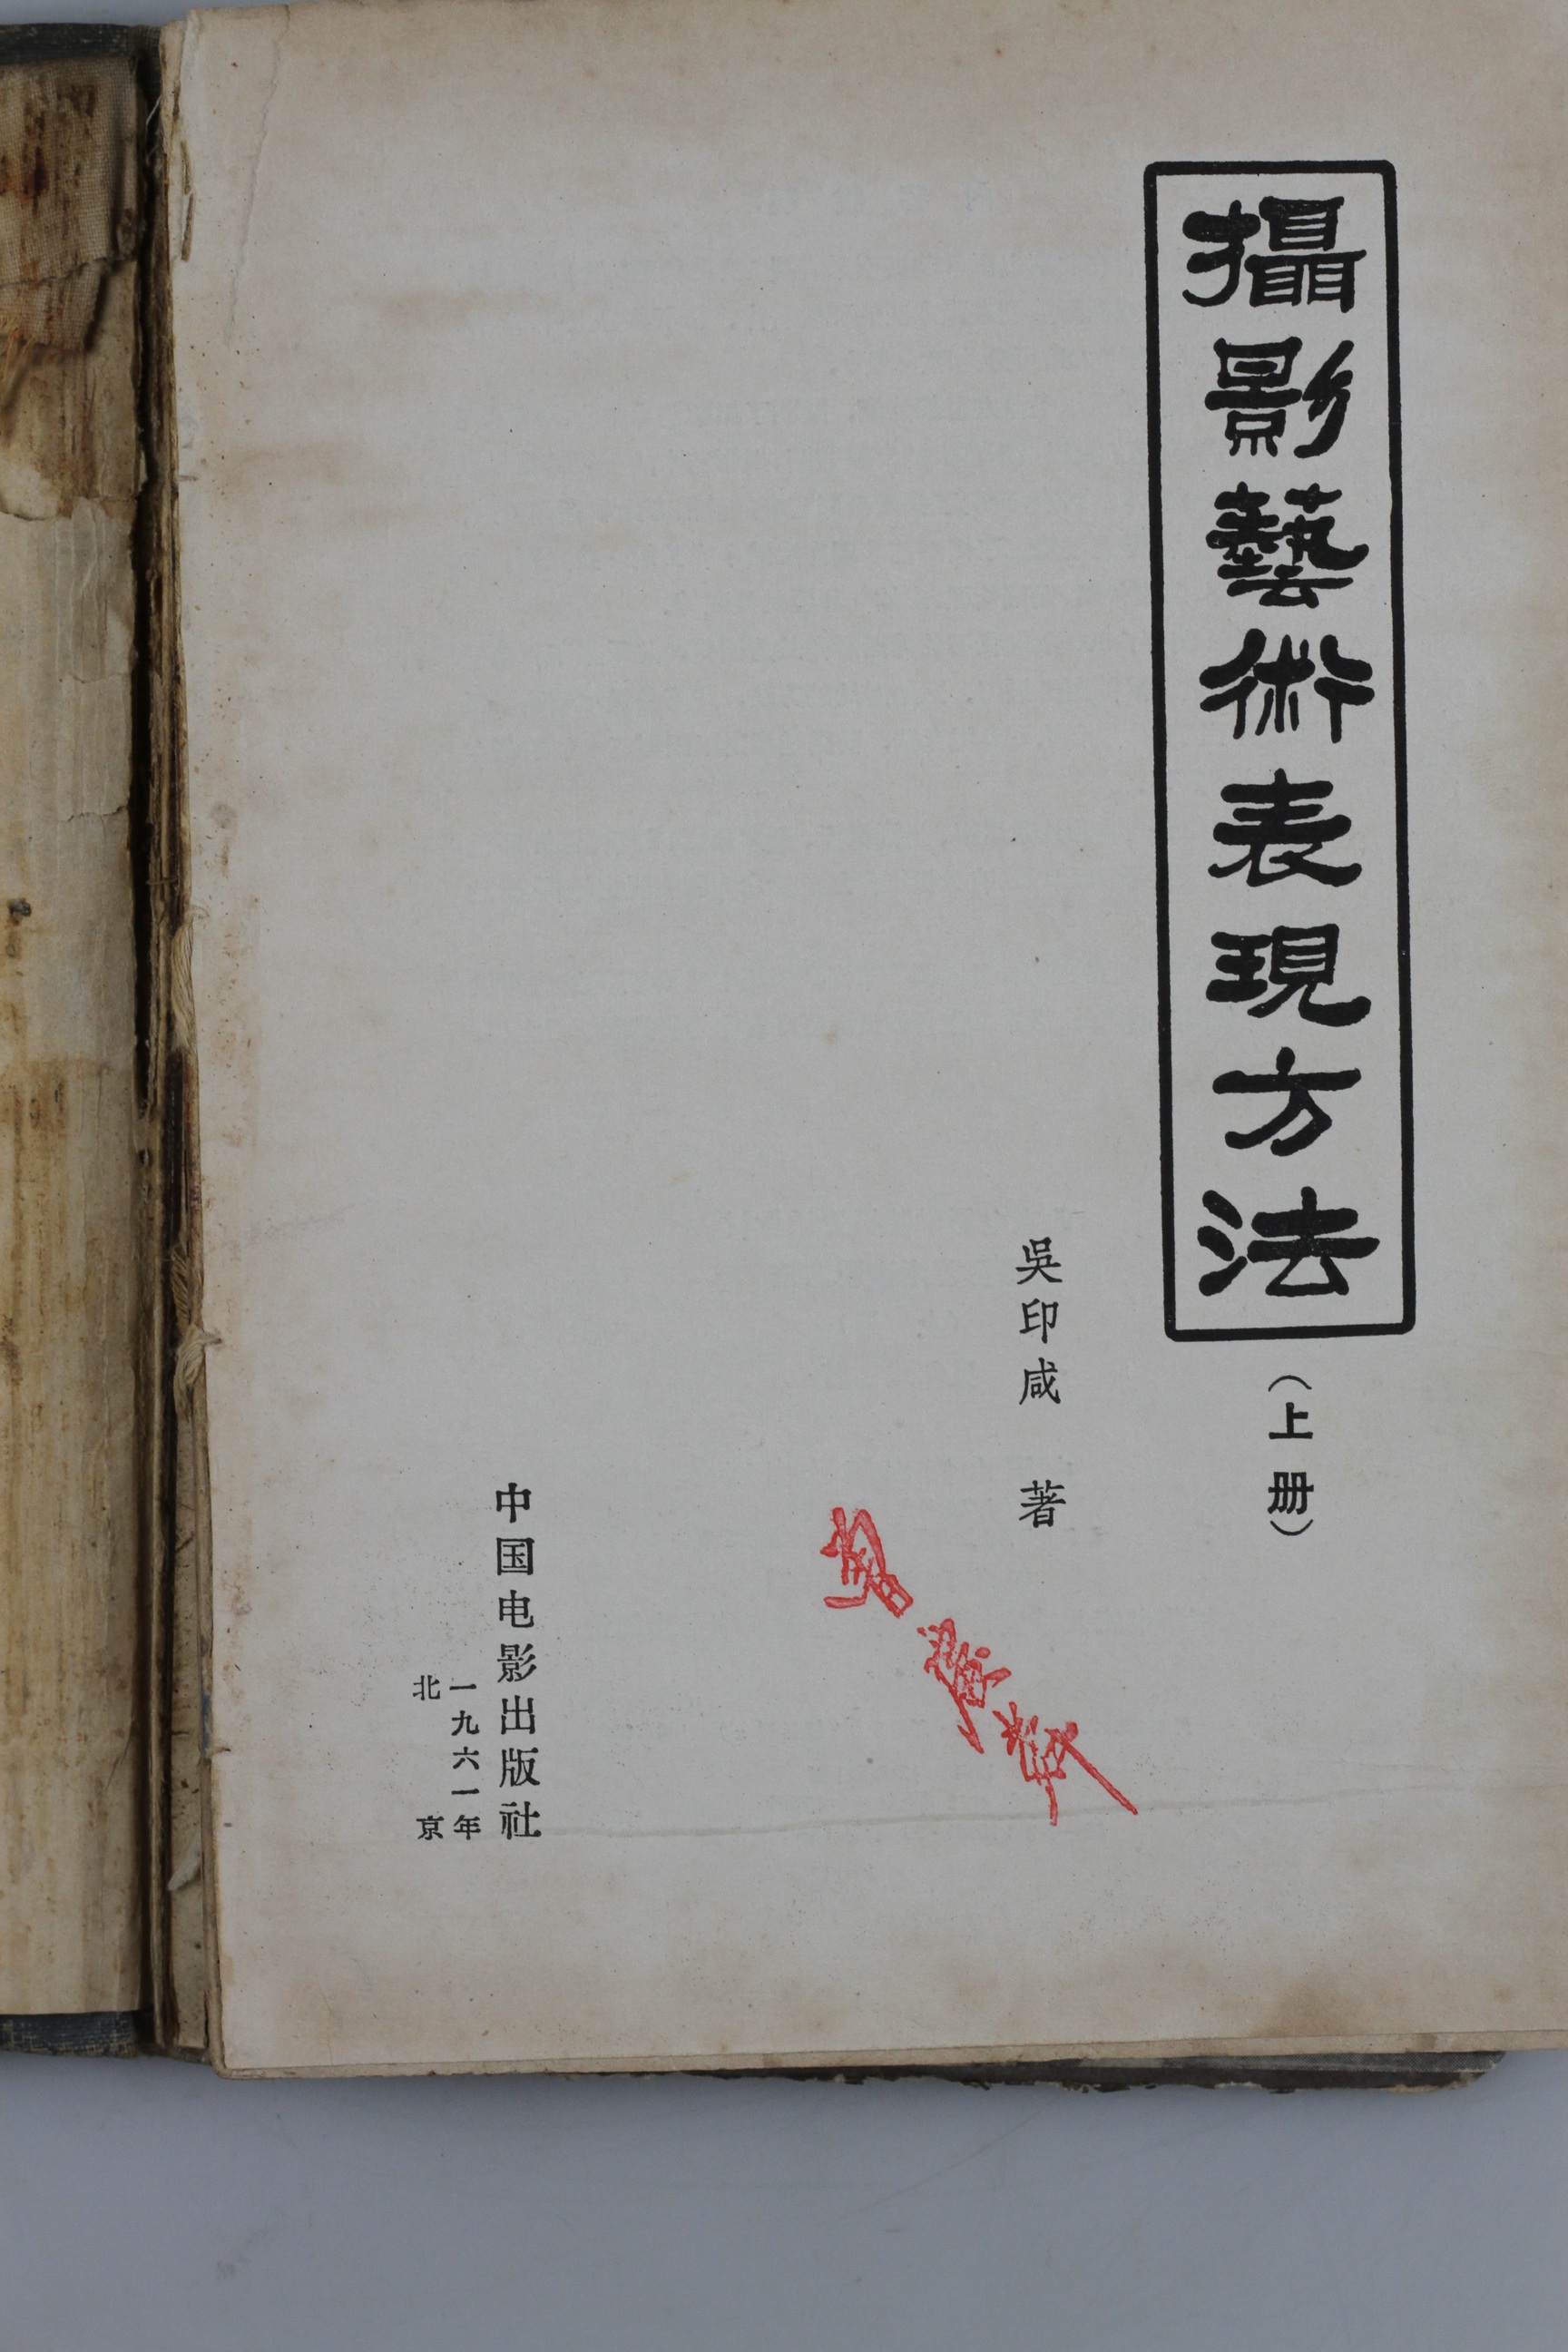 攝影藝術表現方法
（上册）
吳印咸 著
中国电影出版社
一九六一年
北京